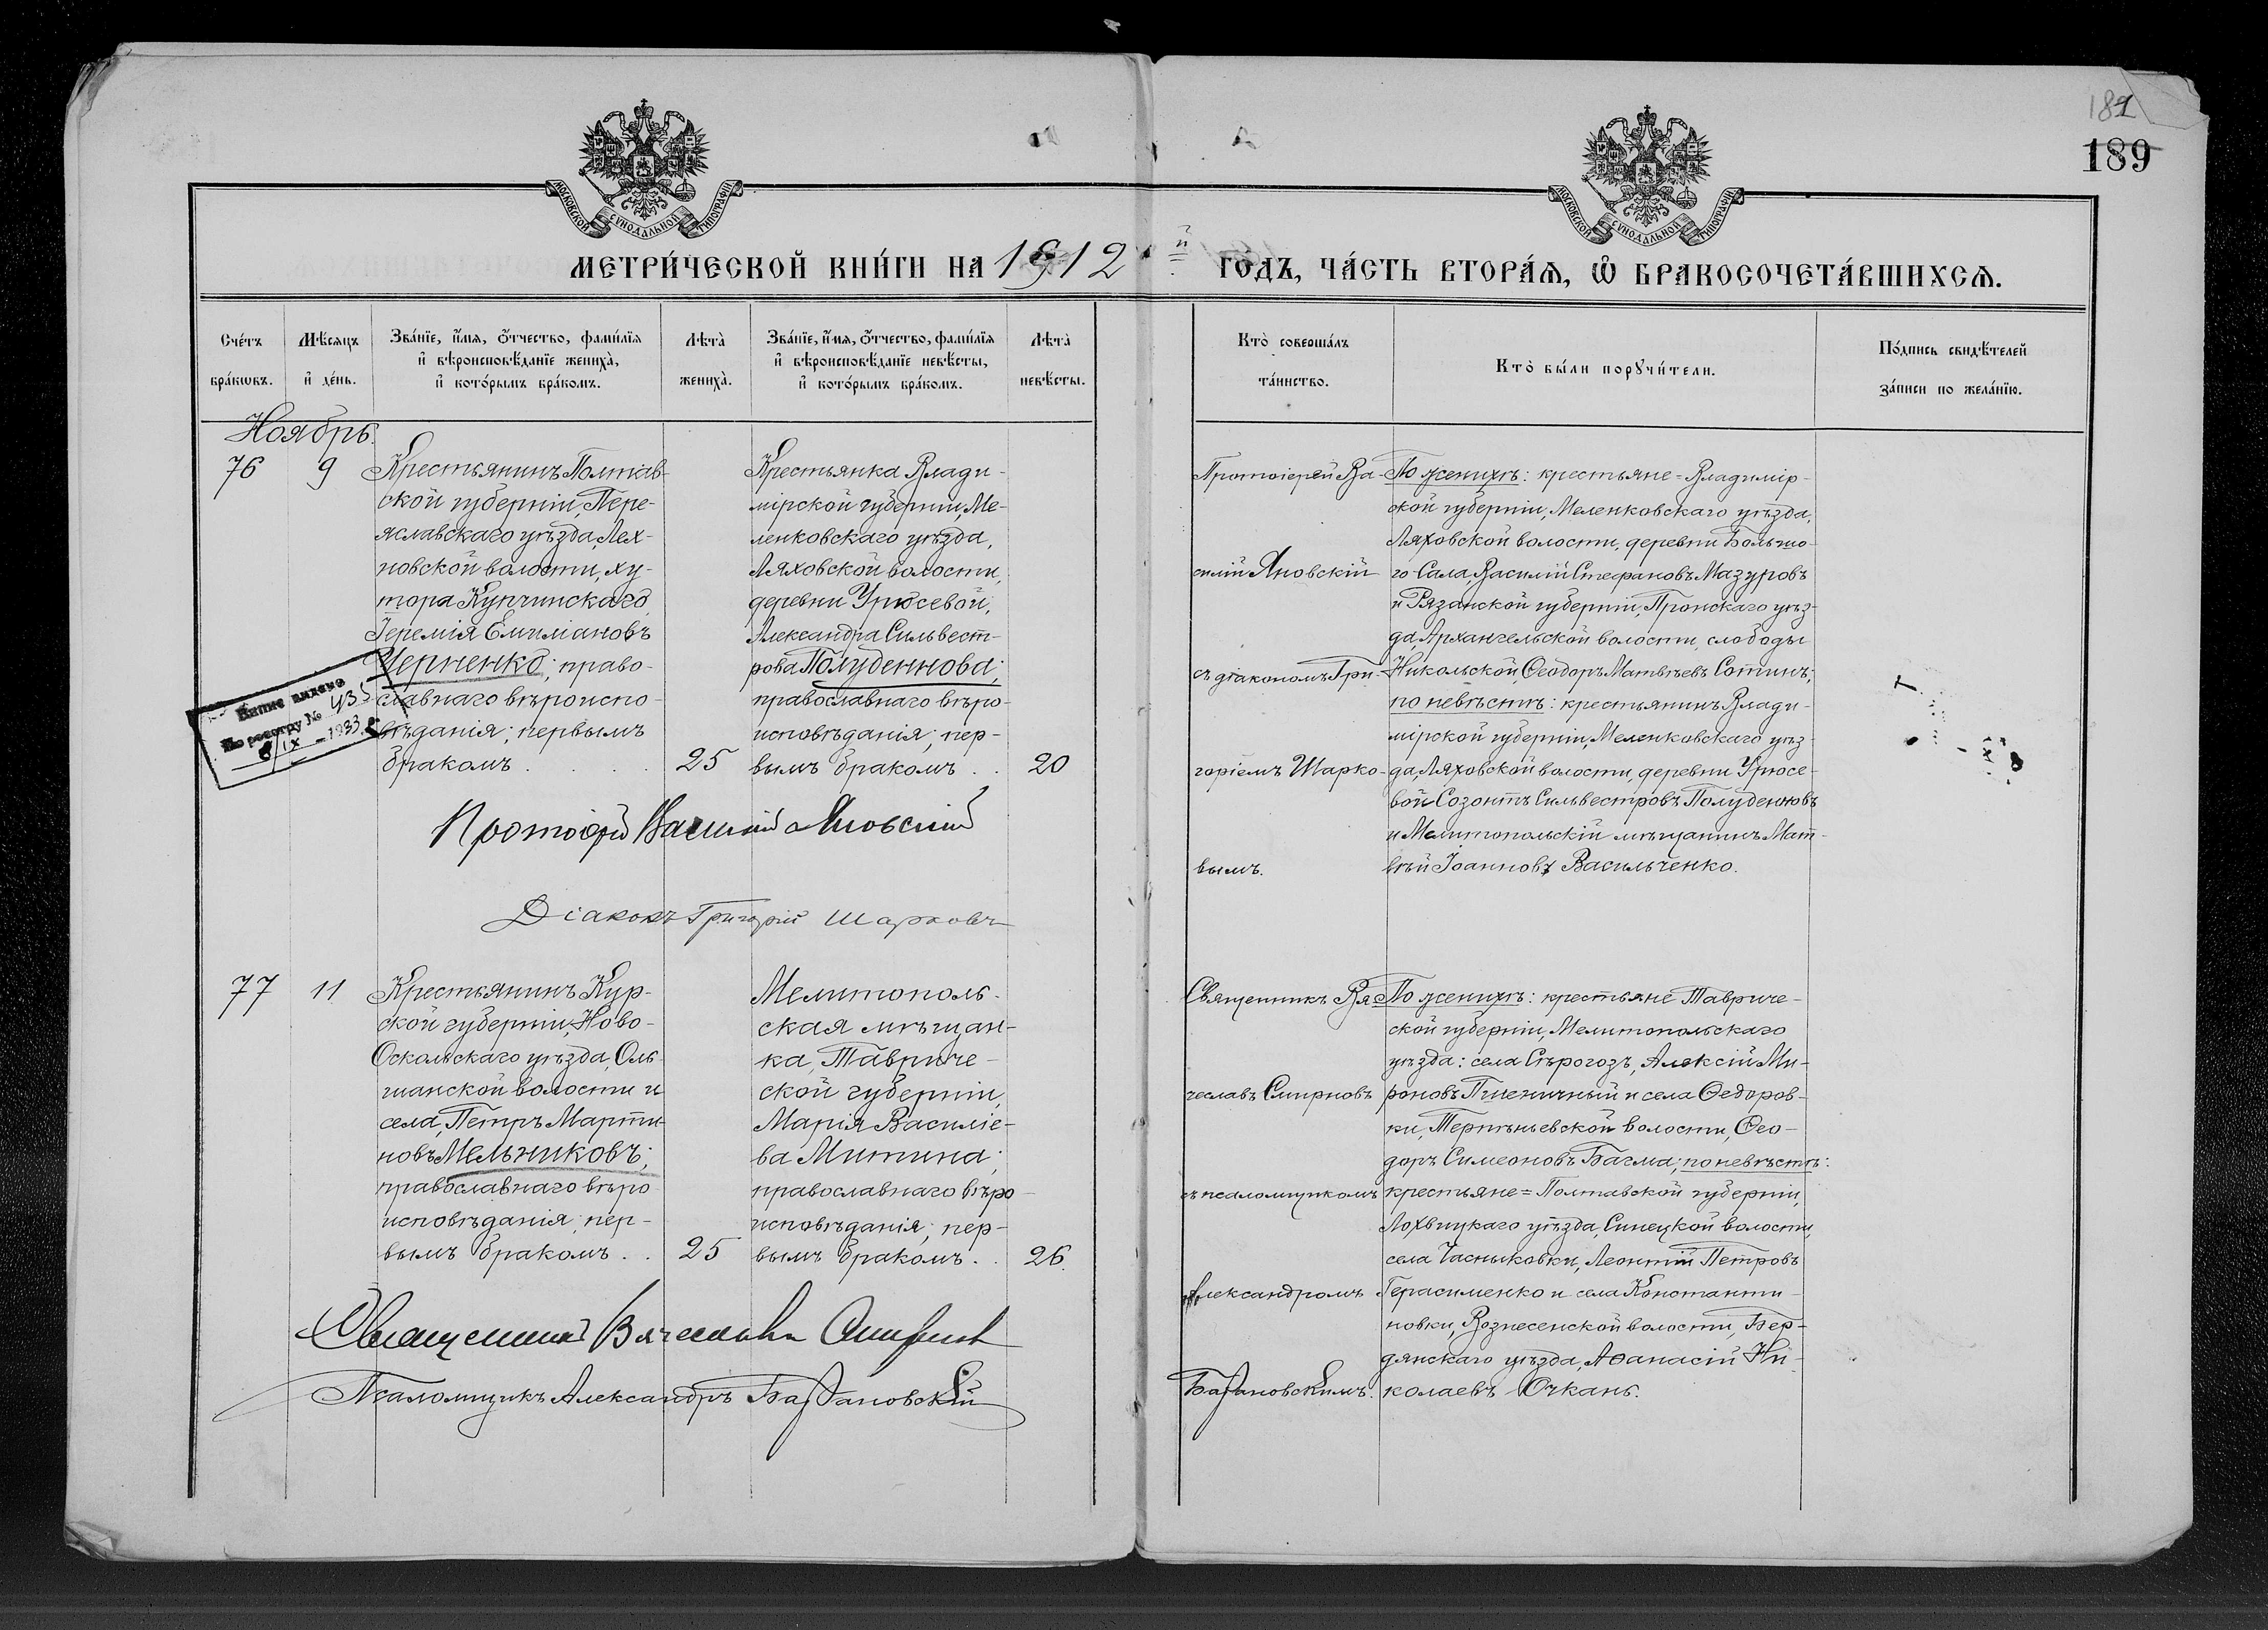 181
189
МОСКОВСКОЙ СѴНОДАЛЬНОЙ ТИПОГРАФІИ
МОСКОВСКОЙ СѴНОДАЛЬНОЙ ТИПОГРАФІИ
МЕТРИ́ЧЕСКОЙ КНИ́ГИ НА 1912й ГО́ДЪ, ЧА́СТЬ ВТОРА́Я, Ѿ БРАКОСОЧЕТА́ВШИХСЯ.
Сче́тъ бра́кѡвъ.
Мѣ́сяцъ и҆ де́нь.
Зва́нїе, и҆́мя, ѻ҆́тчество, фами́лїя
и҆ вѣроисповѣ́данїе жениха̀,
и҆ кото́рымъ бра́комъ.
Лѣта̀ жениха̀.
Зва́нїе, и҆́мя, ѻ҆́тчество, фами́лїя
и҆ вѣроисповѣ́данїе невѣ́сты,
и҆ кото́рымъ бра́комъ.
Лѣта̀ невѣ́сты.
Кто̀ соверша́лъ та́инство.
Кто̀ бы́ли порꙋчи́тели.
По́дпись свидѣ́телей
за́писи по жела́нїю.
Ноябрь.
76
9
Крестьянинъ Полтав-
ской губерніи, Пере-
яславскаго уѣзда, Лех-
новской волости, ху-
тора Купчинскаго
Іеремія Емиліановъ
Черненко; право-
славнаго вѣроиспо-
вѣданія; первымъ
бракомъ . . . .
25
Крестьянка Влади-
мірской губерніи, Ме-
ленковскаго уѣзда,
Ляховской волости,
деревни Урюсевой,
Александра Сильвест-
рова Полуденнова;
православнаго вѣро-
исповѣданія; пер-
вымъ бракомъ . .
20
Протоіерей Ва-
силій Яновскій
съ діакономъ Гри-
горіемъ Шарко-
вымъ.
По женихѣ: крестьяне = Владимір-
ской губерніи, Меленковскаго уѣзда,
Ляховской волости, деревни Большо-
го-Сала, Василій Стефановъ Мазуровъ
и Рязанской губерніи, Пронскаго уѣз-
да, Архангельской волости, слободы
Никольской, Ѳеодоръ Матвѣевъ Сотинъ;
по невѣстѣ: крестьянинъ Влади-
мірской губерніи, Меленковскаго уѣз-
да, Ляховской волости, деревни Урюсе-
вой Созонтъ Сильвестровъ Полуденновъ
и Мелитопольскій мѣщанинъ Мат-
вѣй Іоанновъ Васильченко.
По реєстру № 435
/IX - 1933
Протоіерей Василій Яновскій
Діаконъ Григорій Шарковъ
77
11
Крестьянинъ Кур-
ской губерніи, Ново-
Оскольскаго уѣзда, Оль-
шанской волости и
села, Петръ Марти-
новъ Мельниковъ;
православнаго вѣро-
исповѣданія; пер-
вымъ бракомъ . .
25
Мелитополь-
ская мѣщан-
ка, Тавриче-
ской губерніи,
Марія Василіе-
ва Митина;
православнаго вѣро-
исповѣданія; пер-
вымъ бракомъ . .
26.
Священникъ Вя-
чеславъ Смирновъ
съ псаломщикомъ
Александромъ
Барановскимъ.
По женихѣ: крестьяне Тавриче-
ской губерніи, Мелитопольскаго
уѣзда: села Сѣрогозъ, Алексій Ми-
роновъ Пшеничный и села Ѳедоров-
ки, Терпѣньевской волости, Ѳео-
доръ Симеоновъ Багма; по невѣстѣ:
крестьяне = Полтавской губерніи,
Лохвицкаго уѣзда, Синецкой волости,
села Часныковки, Леонтій Петровъ
Герасименко и села Константи-
новки, Вознесенской волости, Бер-
дянскаго уѣзда, Аѳанасій Ни-
колаевъ Очкань.
Священникъ Вячеславъ Смирновъ
Псаломщикъ Александръ Барановскій